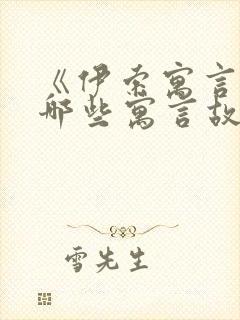 《伊索寓言
那些寓言故
雪先生